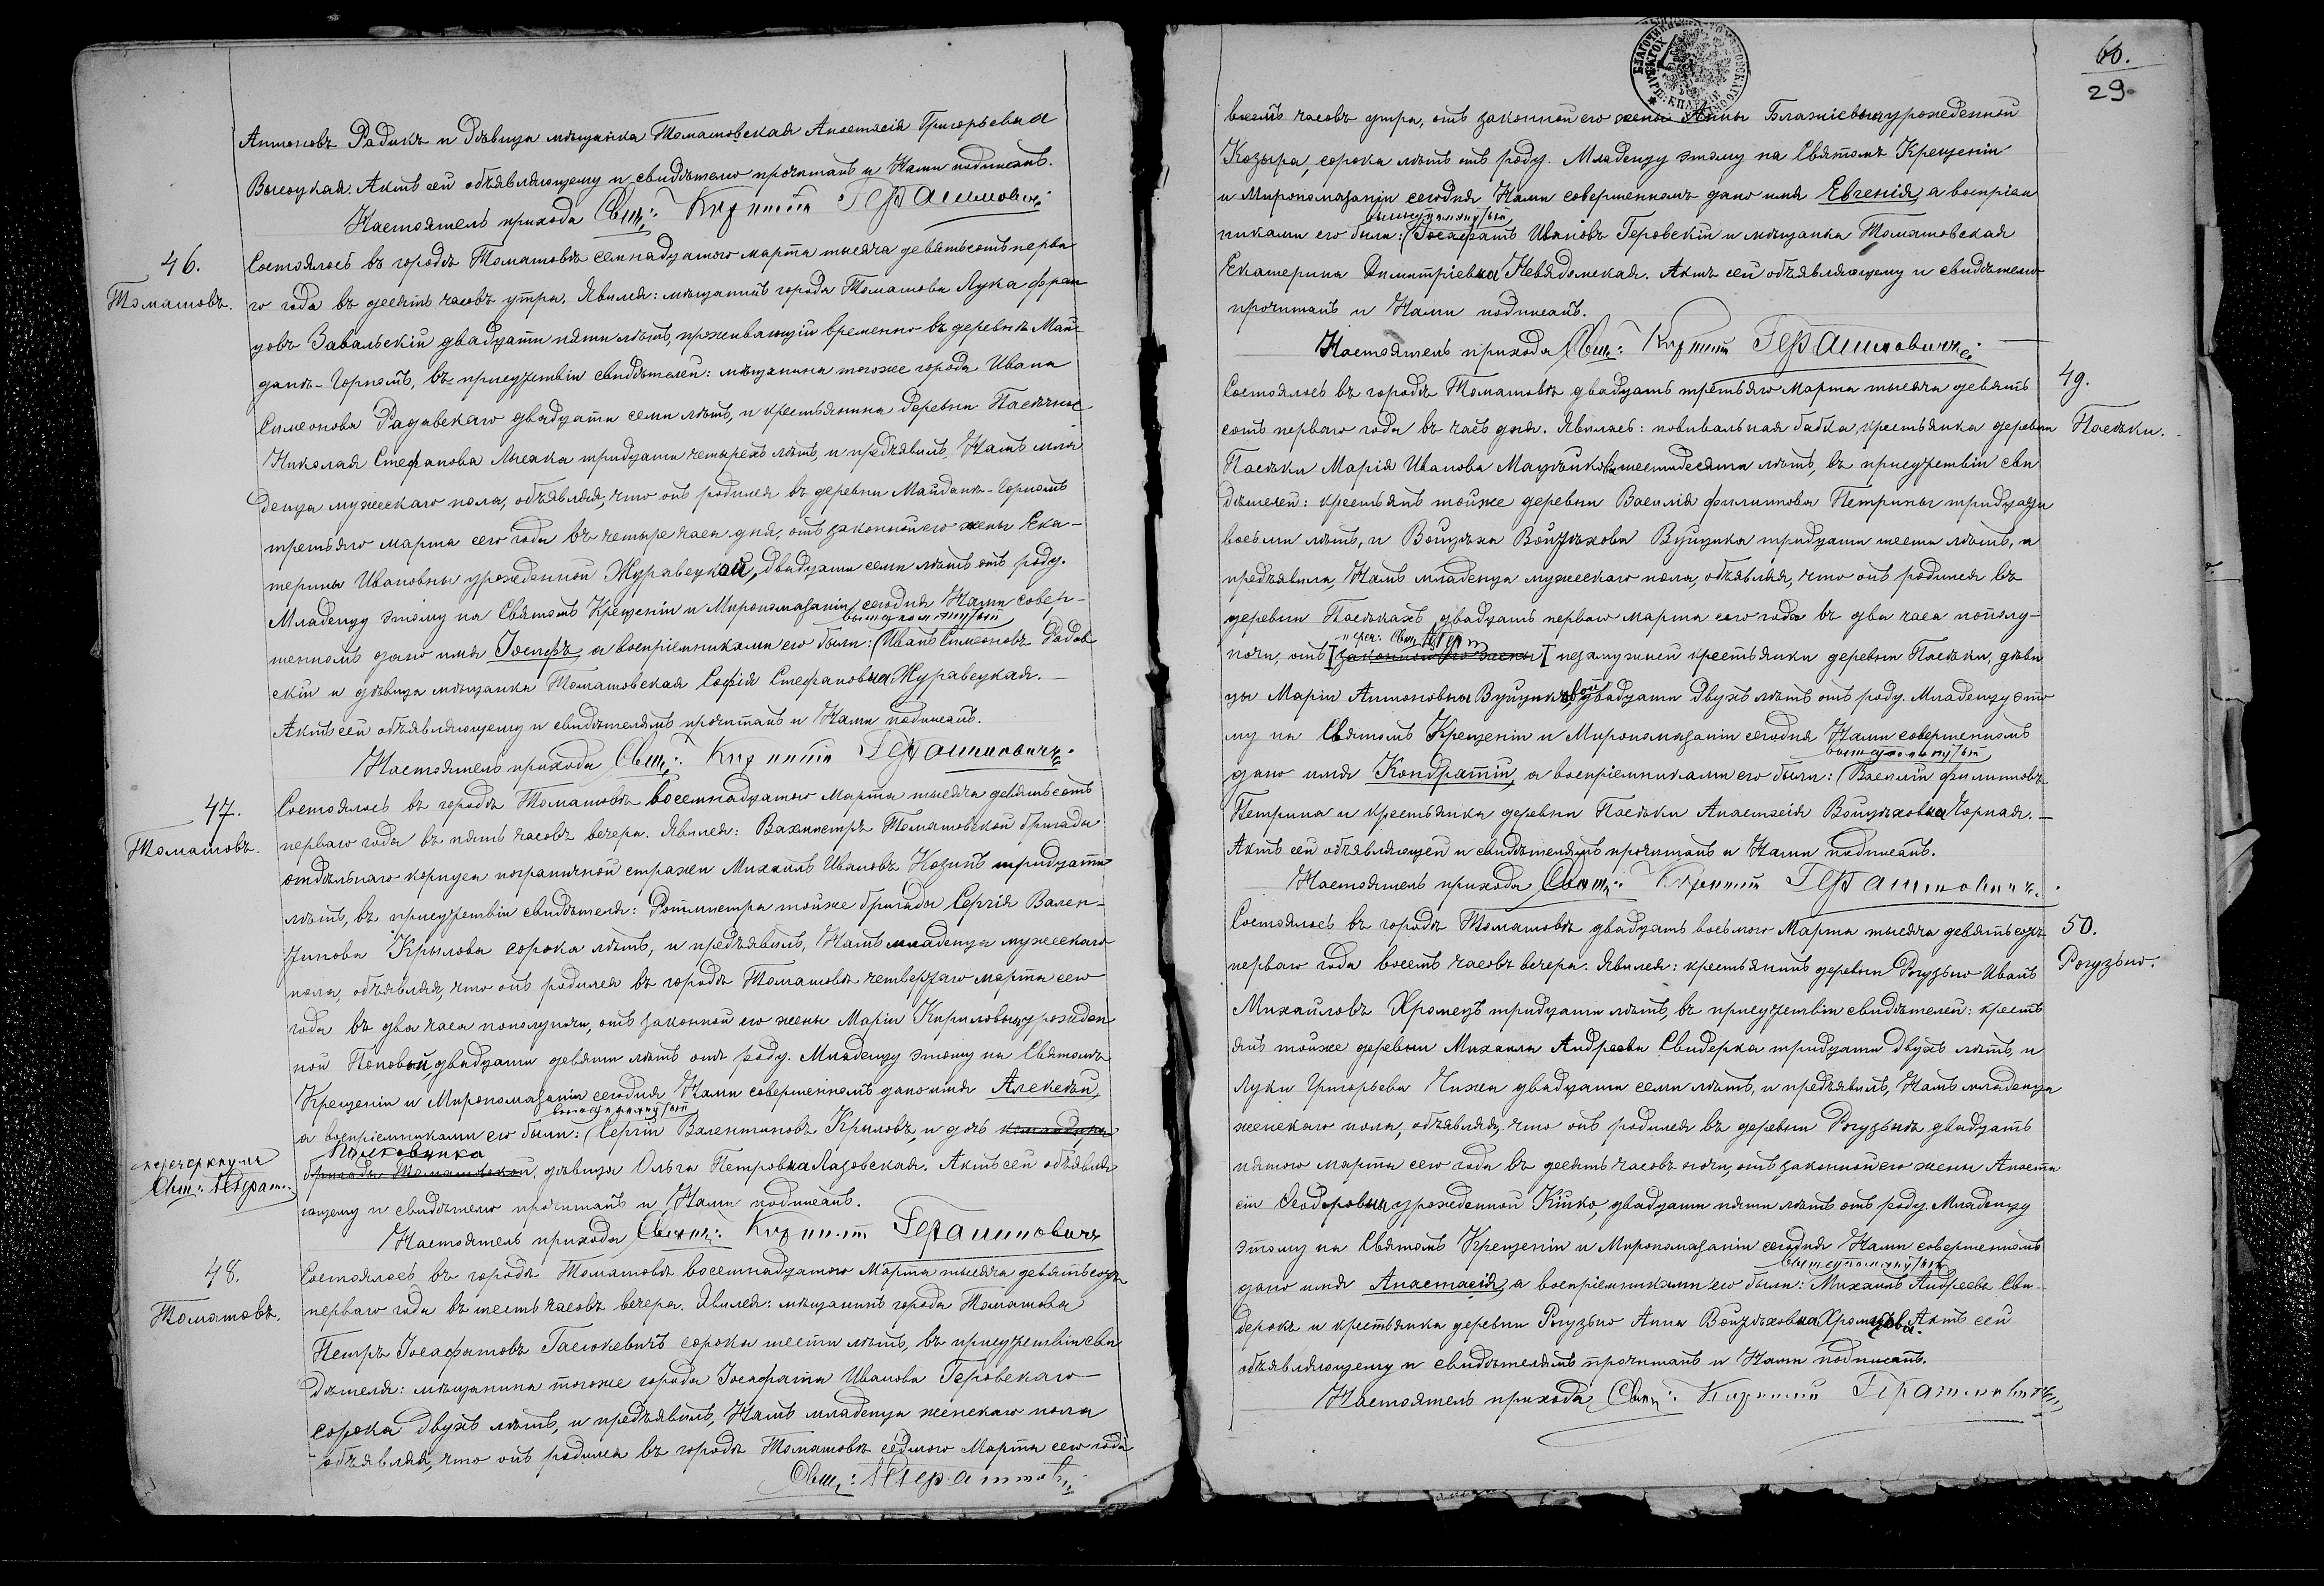 Антоновъ Радикъ и дѣвица мѣщанка Томашовская Анастасія Григорьевна
Высоцкая. Актъ сей объявляющему и свидѣтелю прочитанъ и Нами подписанъ.
Настоятель прихода Свящ: Кирилъ Герасимовичъ
46.
Томашовъ.
Состоялось въ городѣ Томашовѣ семнадцатого марта тысяча девятьсотъ перва
го года въ десять часовъ утра. Явился: мѣщанинъ города Томашова Лука Фран
цовъ Завальскій двадцати пяти лѣтъ, проживающій временно въ деревнѣ Май-
данъ-Горномъ, въ присутствіи свидѣтелей: мѣщанина тогоже города Ивана
Симеонова Радавскаго двадцати семи лѣтъ, и крестьянина деревни Пасѣкы
Николая Стефанова Лысака тридцати четырехъ лѣтъ, и предъявилъ Намъ мла
денца мужескаго пола, объявляя, что онъ родился въ деревни Майданъ-Горномъ
третьяго марта сего года въ четыре часа дня, отъ законной его жены Ека-
терины Ивановны урожденной Журавецкой, двадцати семи лѣтъ отъ роду.
Младенцу этому на Святомъ Крещеніи и Миропомазаніи сегодня Нами совер-
вышеупомянутый
шенномъ дано имя Іосифъ, а воспріемниками его были: Иванъ Симеоновъ Радав
скій и дѣвица мѣщанка Томашовская Софія Стефановна Журавецкая.
Актъ сей объявляющему и свидѣтелямъ прочитанъ и Нами подписанъ.
Настоятель прихода Свящ: Кирилъ Герасимовичъ
47.
Томашовъ.
Состоялось въ городѣ Томашовѣ восемнадцатого Марта тысяча девятьсотъ
перваго года въ пять часовъ вечера. Явился: Вахмистръ Томашовской бригады
отдѣльнаго корпуса пограничной стражи Михаилъ Ивановъ Козинъ тридцати
лѣтъ, въ присутствіи свидѣтеля: Ротмистра тойже бригады Сергія Вален-
тинова Крылова сорока лѣтъ, и предъявилъ Намъ младенца мужескаго
пола, объявляя, что онъ родился въ городѣ Томашовѣ четвертаго марта сего
года въ два часа пополуночи, отъ законной его жены Маріи Кириловны урожден
ной Поповой, двадцати девяти лѣтъ отъ роду. Младенцу этому на Святомъ
Крещеніи и Миропомазаніи сегодня Нами совершенномъ дано имя Алексѣй,
вышеупомянутый
а воспріемниками его были: Сергій Валентиновъ Крыловъ, и дочь командира
Полковника
бригады Томашовской, дѣвица Ольга Петровна Лазовская. Актъ сей объявля
перечеркнулъ
Свящ: Герас..
ющему и свидѣтелю прочитанъ и Нами подписанъ.
Настоятель прихода Свящ: Кирилъ Герасимовичъ
48.
Томашовъ.
Состоялось въ городѣ Томашовѣ восемнадцатого Марта тысяча девятьсотъ
перваго года въ шесть часовъ вечера. Явился: мѣщанинъ города Томашова
Петръ Іосафатовъ Гасюкевичъ сорока шести лѣтъ, въ присутствіи сви
дѣтеля: мѣщанина тогоже города Іосафата Иванова Геровскаго
сорока двухъ лѣтъ, и предъявилъ Намъ младенца женскаго пола
объявляя, что онъ родился въ городѣ Томашовѣ седмого Марта сего года
60.
29
восемь часовъ утра, отъ законной его жены Анны Блазіевны урожденной
Козыра, сорока лѣтъ отъ роду. Младенцу этому на Святомъ Крещеніи
и Миропомазаніи сегодня Нами совершенномъ дано имя Евгенія, а воспріем
вышеупомянутый
никами его были: Іосафатъ Ивановъ Геровскій и мѣщанка Томашовская
Екатерина Димитріевна Невядомская. Актъ сей объявляющему и свидѣтелю
прочитанъ и Нами подписанъ.
Настоятель прихода Свящ: Кирилъ Герасимовичъ
49.
Пасѣки.
Состоялось въ городѣ Томашовѣ двадцать третьяго Марта тысяча девять
сотъ перваго года въ часъ дня. Явилась: повивальная бабка, крестьянка деревни
Пасѣки Марія Иванова шестидесяти лѣтъ, въ присутствіи сви
дѣтелей: крестьянъ тойже деревни Василія Филиппова Петрины тридцати
восьми лѣтъ, и Войцѣха Войцѣхова Вуйцика тридцати шести лѣтъ, и
предъявила Намъ младенца мужескаго пола, объявляя, что онъ родился въ
деревни Пасѣкахъ двадцать перваго марта сего года въ два часа пополу-
ночи, отъ [законной его жены] незамужней крестьянки деревни Пасѣки, дѣви
цы Маріи Антоновны Вуйциковой двадцати двухъ лѣтъ отъ роду. Младенцу это
му на Святомъ Крещеніи и Миропомазаніи сегодня Нами совершенномъ
вышеупомянутый
дано имя Кондратій, а воспріемниками его были: Василій Филипповъ
Петрина и крестьянка деревни Пасѣки Анастасія Войцѣховна Горная.
Актъ сей объявляющей и свидѣтелямъ прочитанъ и Нами подписанъ.
Настоятель прихода Свящ: Кирилъ Герасимовичъ.
50.
Рогузьно.
Состоялось въ городѣ Томашовѣ двадцать восьмого Марта тысяча девятьсотъ
перваго года восемь часовъ вечера. Явился: крестьянинъ деревни Рогузьно Иванъ
Михайловъ Хромецъ тридцати лѣтъ, въ присутствіи свидѣтелей: кресть
янъ тойже деревни Михаила Андреева Свидерка тридцати двухъ лѣтъ, и
Луки Григорьева Чижа двадцати семи лѣтъ, и предъявилъ Намъ младенца
женскаго пола, объявляя, что онъ родился въ деревни Рогузьнѣ двадцать
пятого марта сего года въ десять часовъ ночи, отъ законной его жены Анаста
сіи Ѳеодоровны урожденной Кицко, двадцати пяти лѣтъ отъ роду. Младенцу
этому на Святомъ Крещеніи и Миропомазаніи сегодня Нами совершенномъ
вышеупомянутый
дано имя Анастасія, а воспріемниками его были: Михаилъ Андреевъ Сви-
дерокъ и крестьянка деревни Рогузьно Анна Войцѣховна Хромцова. Актъ сей
объявляющему и свидѣтелямъ прочитанъ и Нами подписанъ.
Настоятель прихода Свящ: Кирилъ Герасимовичъ